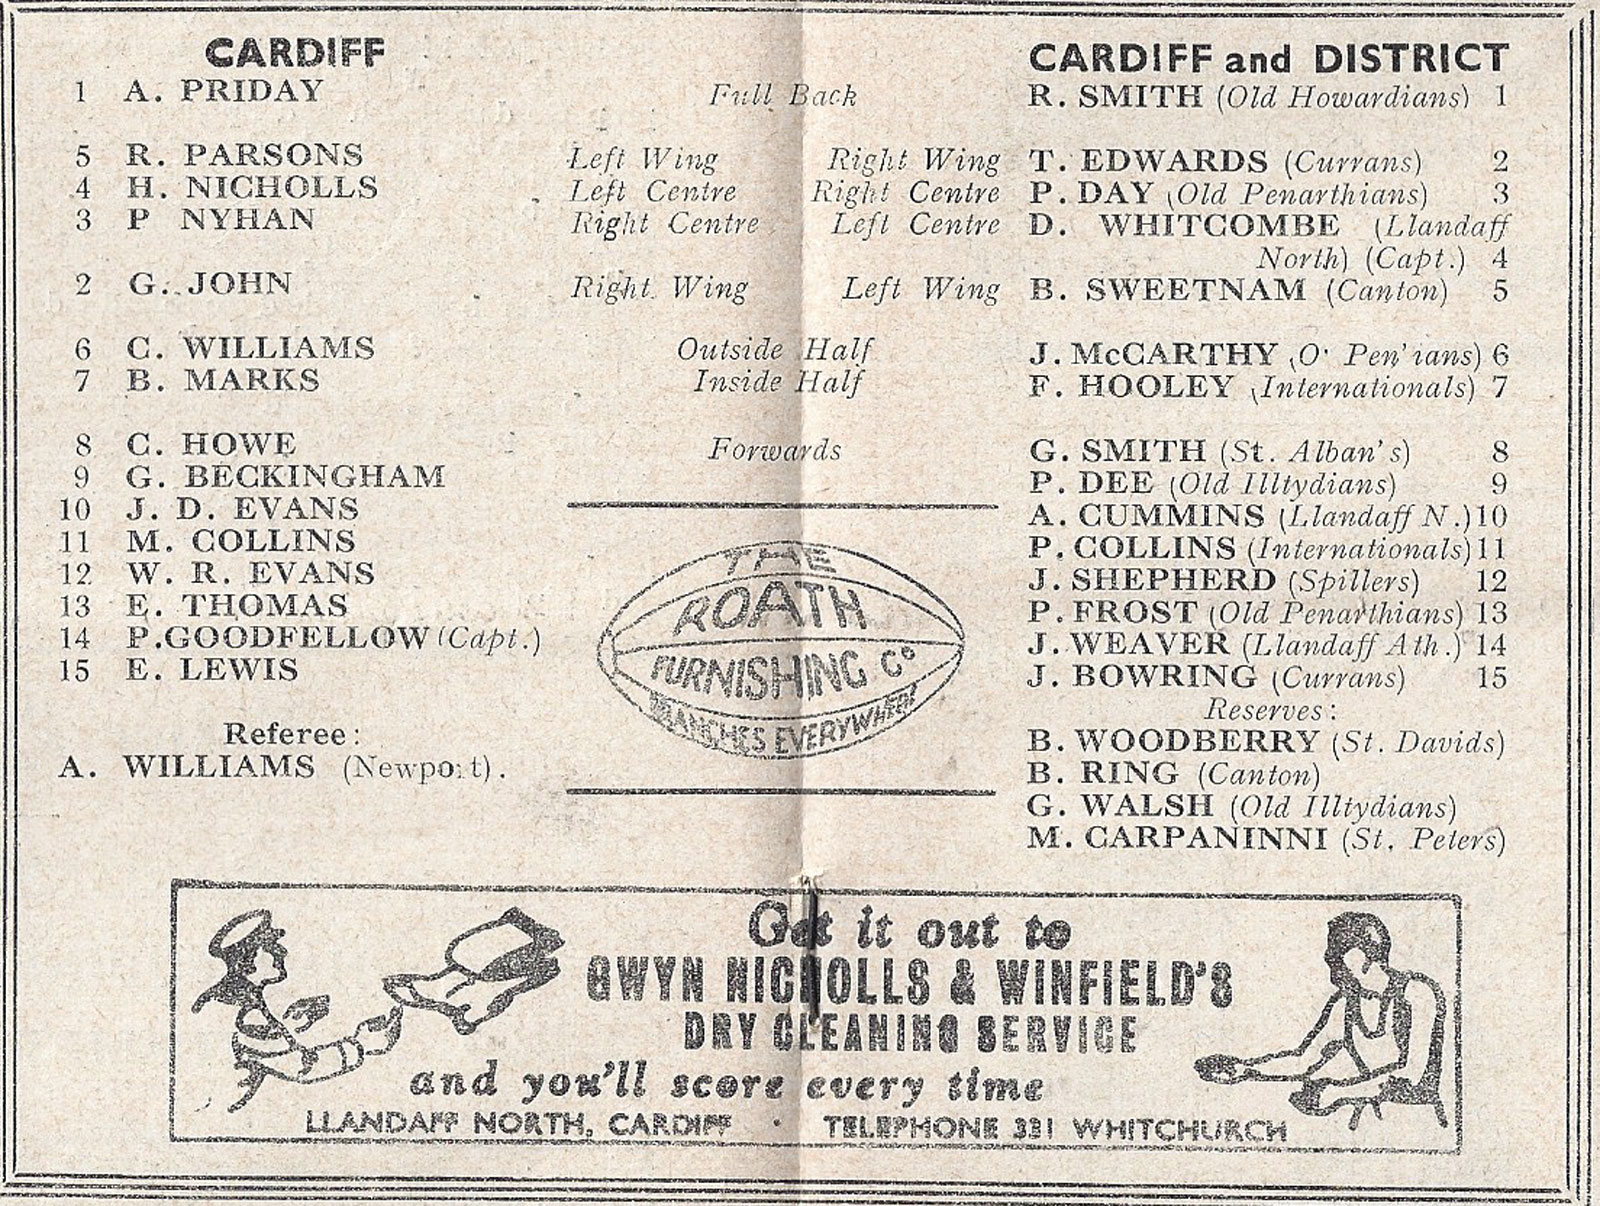 CARDIFF
CARDIFF and DISTRICT
1 A. PRIDAY Full Back R. SMITH (Old Howardians) 1
5 R. PARSONS Left Wing Right Wing T. EDWARDS (Currans) 2
4 H. NICHOLLS Left Centre Right Centre P. DAY (Old Penarthians) 3
3 P NYHAN Right Centre Left Centre D. WHITCOMBE (Llandaff
North) (Capt.) 4
2 G. JOHN Right Wing Left Wing B. SWEETNAM (Canton) 5
6 C. WILLIAMS Outside Half J. McCARTHY (O' Pen'ians) 6
7 B. MARKS Inside Half F. HOOLEY (Internationals) 7
8 C. HOWE Forwards G. SMITH (St. Alban's) 8
9 G. BECKINGHAM P. DEE (Old Illtydians) 9
10 J. D. EVANS A. CUMMINS (Llandaff N.) 10
11 M. COLLINS P. COLLINS (Internationals) 11
12 W. R. EVANS J. SHEPHERD (Spillers) 12
13 E. THOMAS P. FROST (Old Penarthians) 13
14 P. GOODFELLOW (Capt.) J. WEAVER (Llandaff Ath.) 14
15 E. LEWIS J. BOWRING (Currans) 15
THE
ROATH
FURNISHING Co
BRANCHES EVERYWHERE
Referee:
A. WILLIAMS (Newport).
Reserves:
B. WOODBERRY (St. Davids)
B. RING (Canton)
G. WALSH (Old Illtydians)
M. CARPANINNI (St. Peters)
Get it out to
GWYN NICHOLLS & WINFIELD'S
DRY CLEANING SERVICE
and you'll score every time
LLANDAFF NORTH, CARDIFF · TELEPHONE 331 WHITCHURCH